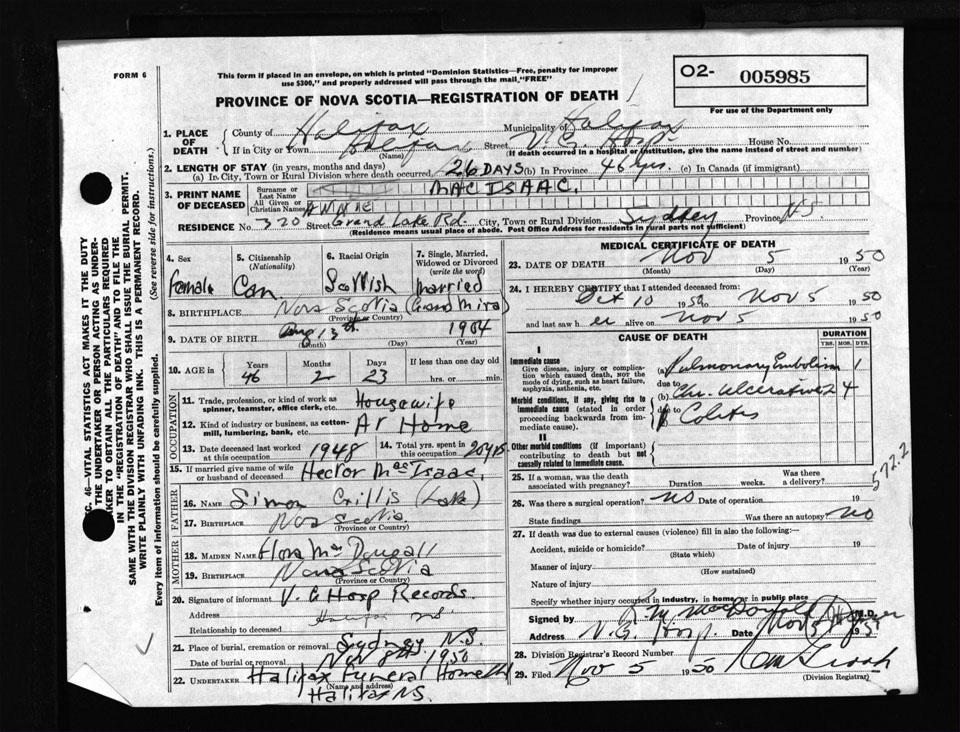 FORM 6
This form if placed in an envelope, on which is printed "Dominion Statistics—Free, penalty for improper
use $300," and properly addressed will pass through the mail, "FREE"
PROVINCE OF NOVA SCOTIA—REGISTRATION OF DEATH
O2- 005985
For use of the Department only
SEC. 46—VITAL STATISTICS ACT MAKES IT THE DUTY
OF THE UNDERTAKER OR PERSON ACTING AS UNDER-
TAKER TO OBTAIN ALL THE PARTICULARS REQUIRED
IN THE "REGISTRATION OF DEATH" AND TO FILE THE
SAME WITH THE DIVISION REGISTRAR WHO SHALL ISSUE THE BURIAL PERMIT.
WRITE PLAINLY WITH UNFADING INK. THIS IS A PERMANENT RECORD.
Every item of information should be carefully supplied. (See reverse side for instructions.)
1. PLACE OF DEATH County of Halifax Municipality of Halifax
If in City or Town Halifax (Name) Street V.G. Hosp House No.
(If death occurred in a hospital or institution, give the name instead of street and number)
2. LENGTH OF STAY (in years, months and days)
(a) In City, Town or Rural Division where death occurred 26 DAYS (b) In Province 46 yrs. (c) In Canada (if immigrant)
3. PRINT NAME OF DECEASED Surname or Last Name MAC ISAAC.
All Given or Christian Names ANNIE
RESIDENCE No. 220 Street Grand Lake Rd. City, Town or Rural Division Sydney Province N.S.
(Residence means usual place of abode. Post Office Address for residents in rural parts not sufficient)
4. Sex Female
5. Citizenship (Nationality) Can
6. Racial Origin Scottish
7. Single, Married, Widowed or Divorced (write the word) married
8. BIRTHPLACE Nova Scotia (Grand Mira)
(Province or Country)
9. DATE OF BIRTH Aug 13th 1904
(Month) (Day) (Year)
10. AGE in Years 46 Months 2 Days 23 If less than one day old hrs. or min.
OCCUPATION
11. Trade, profession, or kind of work as spinner, teamster, office clerk, etc. Housewife
12. Kind of industry or business, as cotton-mill, lumbering, bank, etc. At Home
13. Date deceased last worked at this occupation 1948
14. Total yrs. spent in this occupation 20 yrs.
15. If married give name of wife or husband of deceased Hector MacIsaac
FATHER
16. NAME Simon Gillis (Lake)
17. BIRTHPLACE Nova Scotia
(Province or Country)
MOTHER
18. MAIDEN NAME Flora MacDougall
19. BIRTHPLACE Nova Scotia
(Province or Country)
20. Signature of informant V. G Hosp Records.
Address Halifax NS
Relationship to deceased
21. Place of burial, cremation or removal Sydney N.S.
Date of burial or removal Nov 8th 1950
22. UNDERTAKER Halifax Funeral Home
(Name and address)
Halifax NS.
MEDICAL CERTIFICATE OF DEATH
23. DATE OF DEATH Nov 5 1950
(Month) (Day) (Year)
24. I HEREBY CERTIFY that I attended deceased from:
Oct 10 1950 to Nov 5 1950
and last saw h er alive on Nov 5 1950
CAUSE OF DEATH
DURATION
YRS. MOS. DYS.
I
Immediate cause
Give disease, injury or complication which caused death, not the mode of dying, such as heart failure, asphyxia, asthenia, etc.
(a) Pulmonary Embolism 1
due to
Morbid conditions, if any, giving rise to immediate cause (stated in order proceeding backwards from immediate cause).
(b) Chr. Ulcerative 2 4
due to
Colitis
II
Other morbid conditions (if important) contributing to death but not causally related to immediate cause.
572.2
25. If a woman, was the death associated with pregnancy? Duration weeks. Was there a delivery?
26. Was there a surgical operation? no Date of operation 19
State findings Was there an autopsy? no
27. If death was due to external causes (violence) fill in also the following:
Accident, suicide or homicide? Date of injury 19
(State which)
Manner of injury
(How sustained)
Nature of injury
Specify whether injury occurred in industry, in home or in public place
Signed by MacDonald M.D.
Address V.G. Hosp. Date Nov 5 1950
28. Division Registrar's Record Number
29. Filed Nov 5 1950
(Division Registrar)